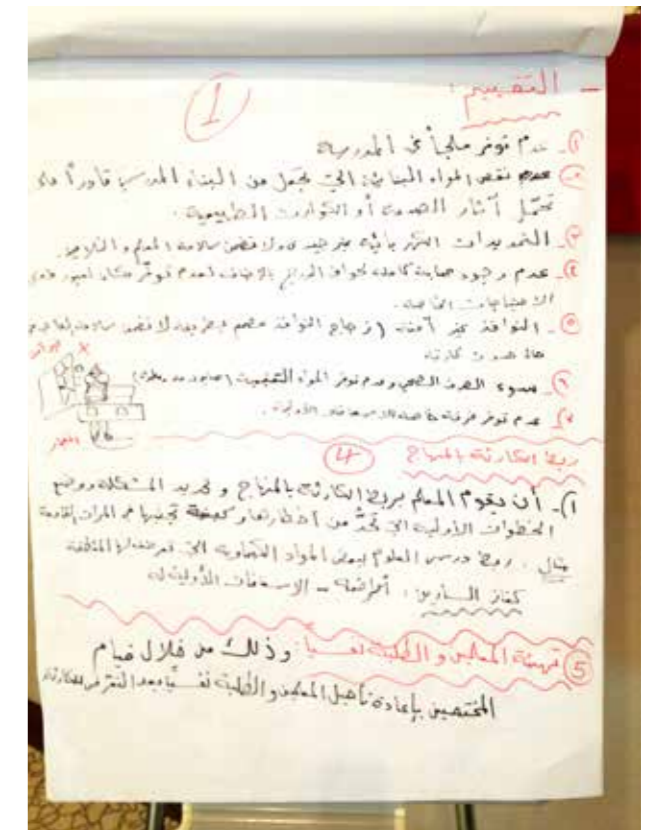 - التقييم:
1
١- عدم توفر ملجأ في المدرسة
٢- نقص المواد البنائية التي تجعل من البناء المدرسي قادراً على
تحمّل آثار الصدمة أو الكوارث الطبيعية.
٣- التمديدات الكهربائية غير جيدة ولا تضمن سلامة المعلم والتلاميذ
٤- عدم وجود حماية كاملة لحواف الدرج بالإضافة لعدم توفّر مكان لعبور ذوي
الاحتياجات الخاصة.
٥- النوافذ غير آمنة (زجاج النوافذ مصمم بطريقة لا تضمن سلامة
حال حدوث كارثة
٦- سوء الصرف الصحي وعدم توفر المواد
٧- عدم توفر غرفة خاصة للإسعافات الأولية.
ربط الكارثة بالمنهاج 4
١- أن يقوم المعلم بربط الكارثة بالمنهاج وتحديد المشكلة ووضع
الخطوات الأولية التي تحدّ من أخطارها وكيفية تجنبها في المرات القادمة
مثال: ربط درس العلوم ببعض المواد الكيماوية التي تعرضت لها المنطقة
كغاز السارين: أعراضه - الإسعافات الأولية له
5 تهيئة المعلمين والطلبة نفسياً: وذلك من خلال قيام
المختصين بإعادة تأهيل المعلمين والطلبة نفسياً بعد التعرض للكارثة